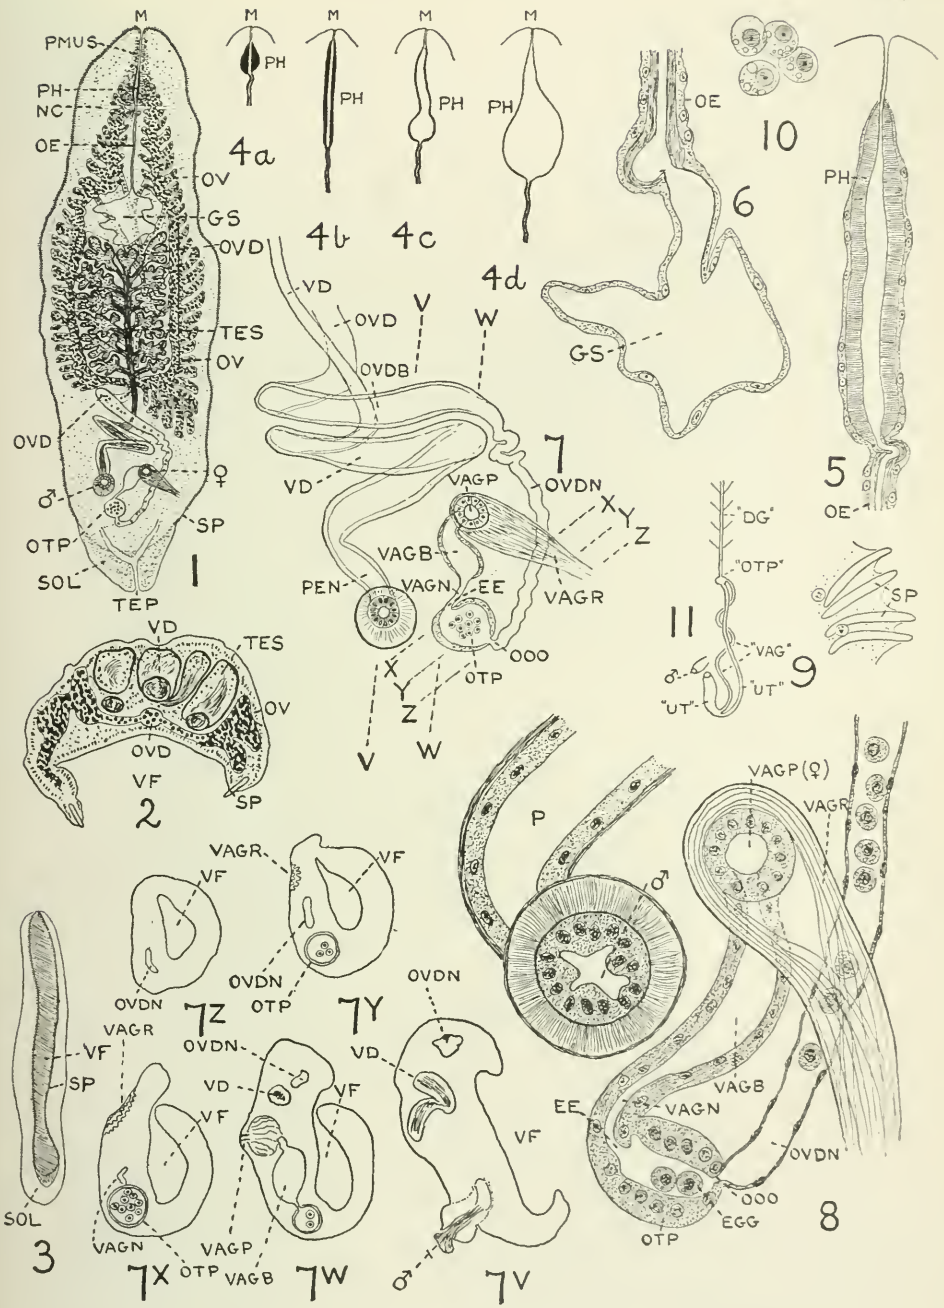 M
PMUS
PH
NC
OE
OV
GS
OVD
TES
OV
OVD
♂
♀
OTP
SP
SOL
TEP
1
M
PH
4a
M
PH
4b
M
PH
4c
M
PH
4d
OE
6
GS
10
PH
5
OE
VD
OVD
V
W
OVDB
VD
7
VAGP
OVDN
X
Y
Z
VAGB
PEN
VAGN
EE
VAGR
OOO
X
Y
Z
OTP
V
W
"DG"
"OTP"
11
"VAG"
♂
"UT"
"UT"
SP
9
VD
TES
OV
OVD
VF
SP
2
VF
SP
SOL
3
VF
OVDN
7Z
VAGR
VF
OVDN
OTP
7Y
VAGR
VF
VAGN
OTP
7X
OVDN
VD
VF
VAGP
VAGB
7W
OVDN
VD
VF
♂
7V
P
♂
VAGP(♀)
VAGR
VAGB
VAGN
EE
OVDN
OOO
EGG
OTP
8